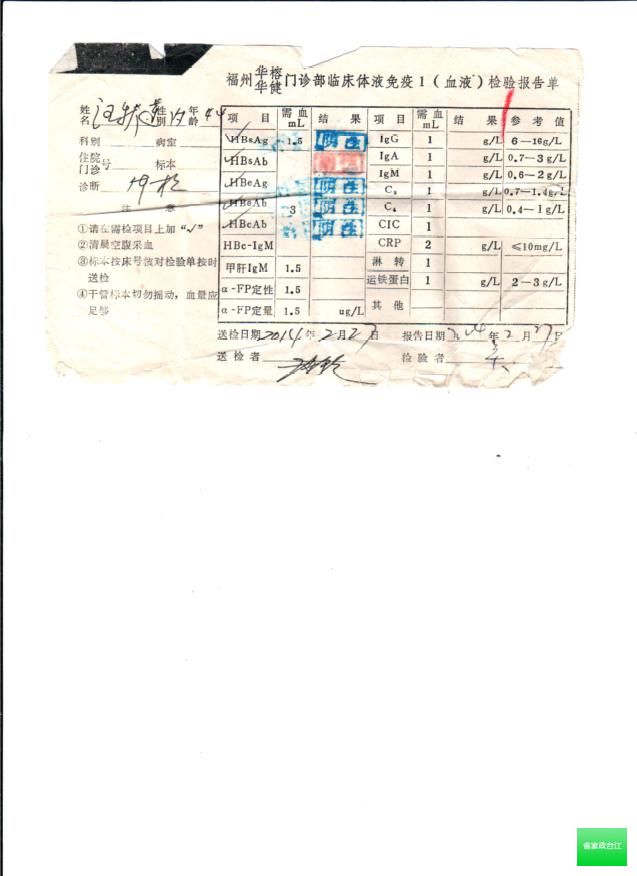 福州 华榕 华健 门诊部临床体液免疫1(血液)检验报告单
姓名 性别 年龄 44
科别 病室
住院 门诊 号 标本
诊断
注意
①请在需检项目上加“√”
②清晨空腹采血
③标本按床号核对检验单按时
送检
④干管标本切勿摇动，血量应
足够
项目 需血mL 结果 项目 需血mL 结果 参考值
√HBsAg 1.5 阴性 IgG 1 g/L 6—16g/L
√HBsAb 阳性 IgA 1 g/L 0.7—3g/L
√HBeAg 阴性 IgM 1 g/L 0.6—2g/L
√HBeAb 3 阴性 C₃ 1 g/L 0.7—1.4g/L
√HBcAb 阴性 C₄ 1 g/L 0.4—1g/L
HBc-IgM CIC 1
CRP 2 g/L ≤10mg/L
甲肝IgM 1.5 淋转 1
α-FP定性 1.5 运铁蛋白 1 g/L 2—3g/L
α-FP定量 1.5 ug/L 其他
送检日期2014年2月27日 报告日期 年2月27日
送检者 检验者
省家政台江